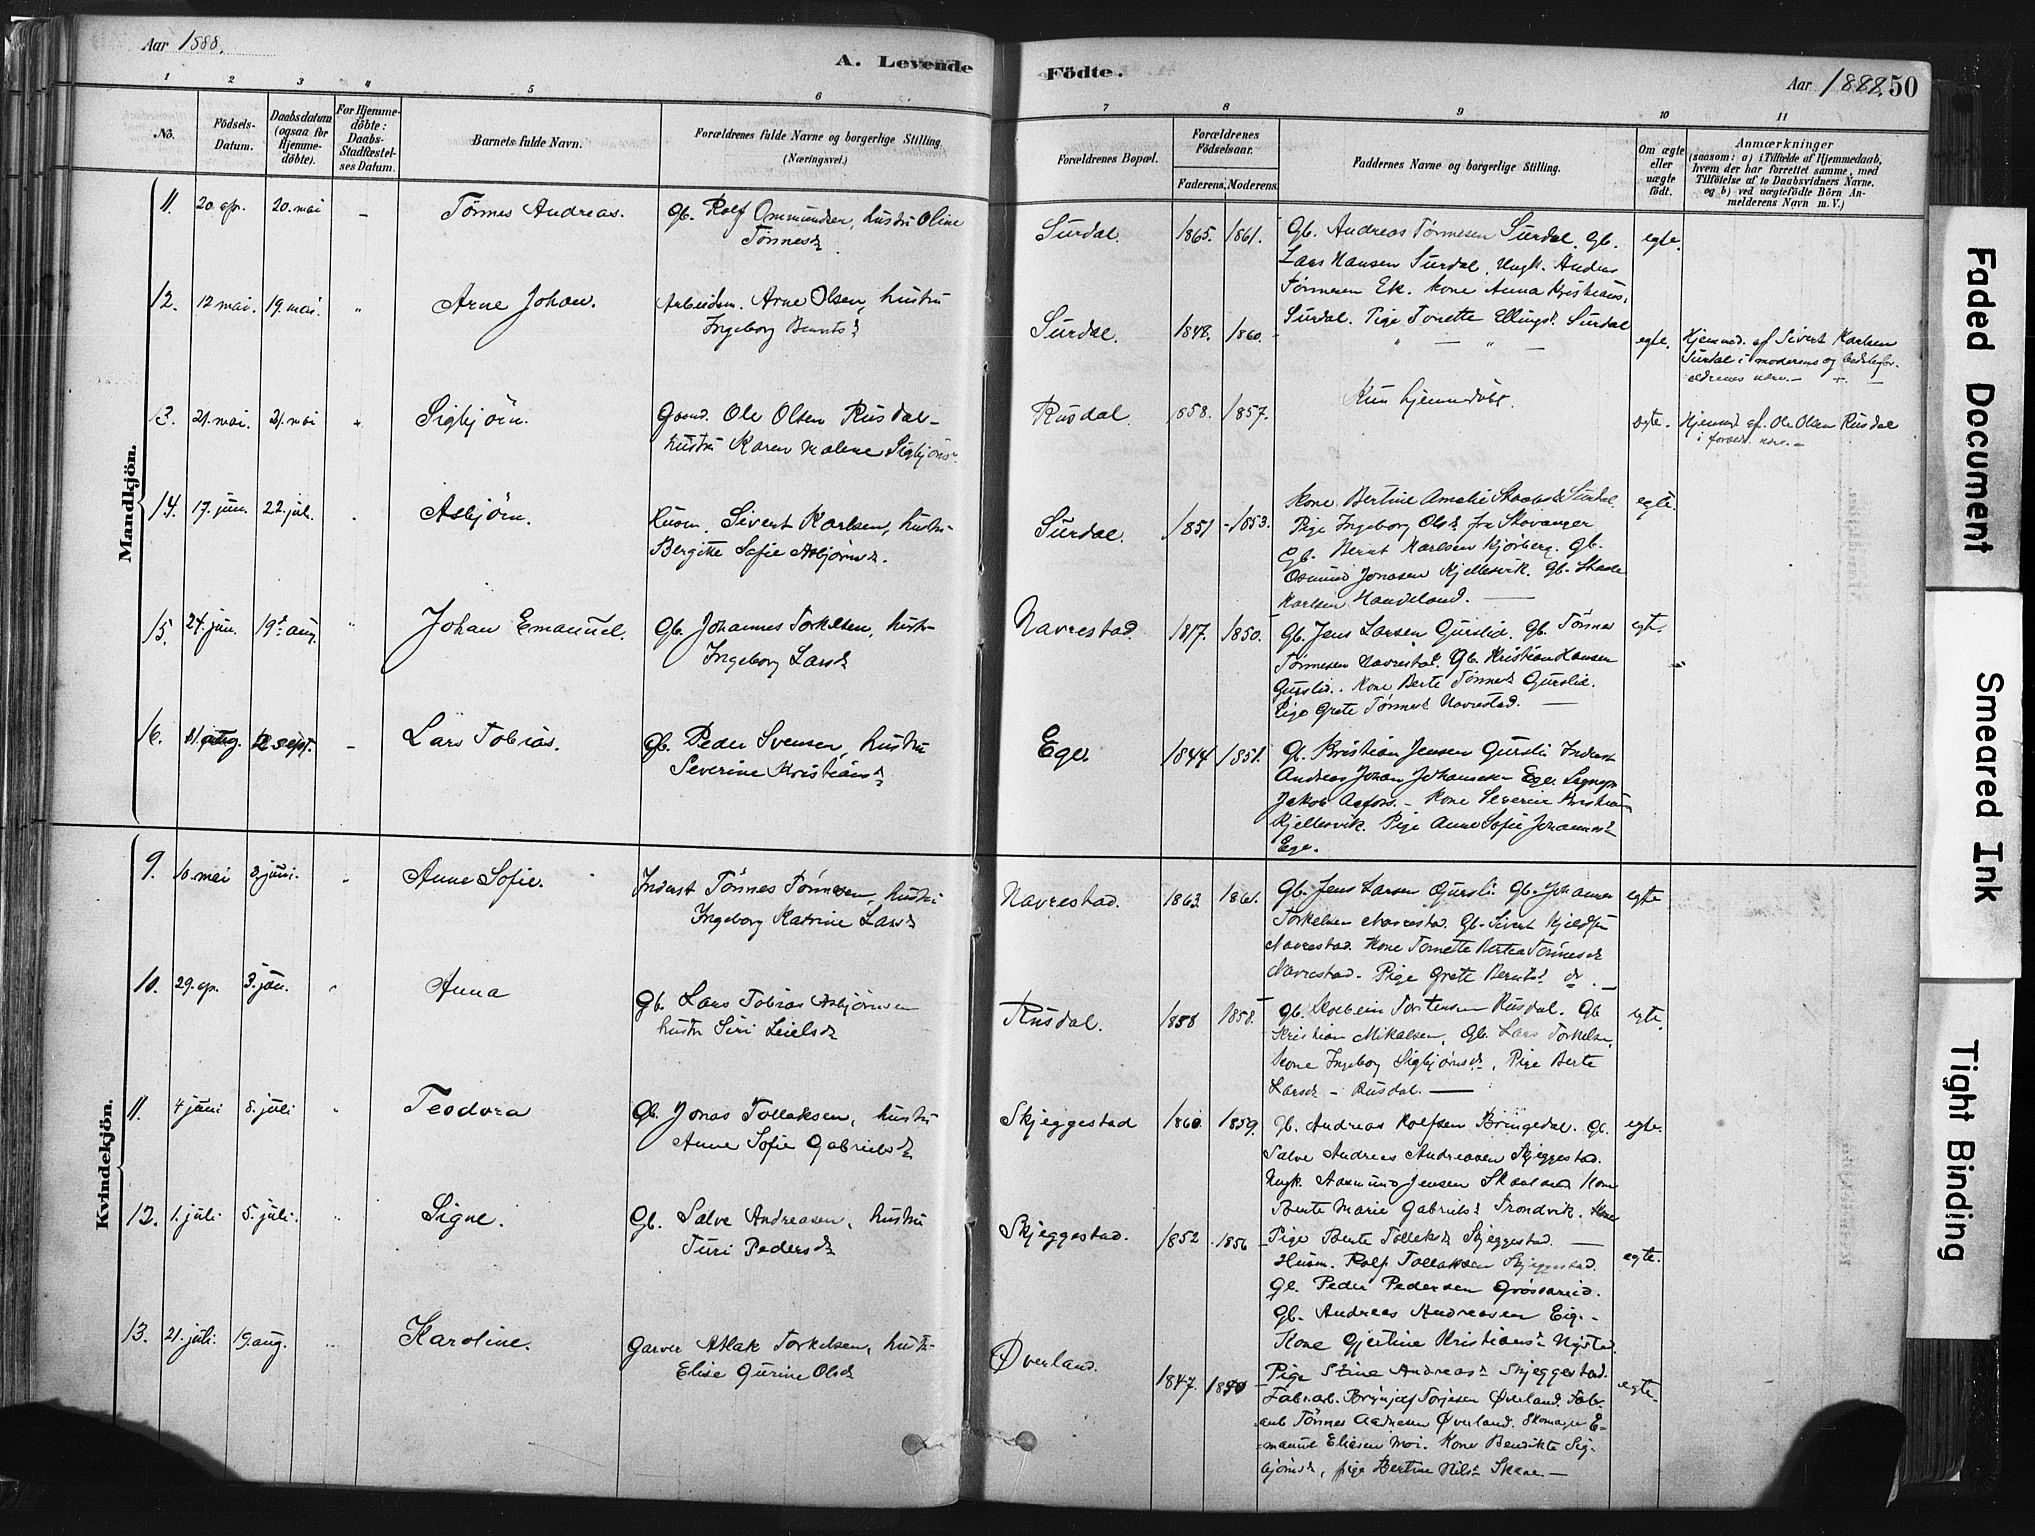 Aar 1888.
A. Levende Födte.
Aar 1888. 50
1 2 3 4 5 6 7 8 9 10 11
No.
Födsels-Datum.
Daabsdatum (ogsaa for Hjemme-döbte).
For Hjemme-döbte: Daabs-Stadfæstel-ses Datum.
Barnets fulde Navn.
Forældrenes fulde Navne og borgerlige Stilling.
(Næringsvei.)
Forældrenes Bopæl.
Forældrenes Födselsaar.
Faderens. Moderens.
Faddernes Navne og borgerlige Stilling.
Om ægte eller uægte födt.
Anmærkninger
(saasom: a) i Tilfælde af Hjemmedaab,
hvem der har forrettet samme, med
Tilföielse af to Daabsvidners Navne,
og b) ved uægtefödte Börn An-
melderens Navn m. V.)
Mandkjön.
11. 20. apr. 20. mai – Tönnes Andreas. Gb. Rolf Ommundsen, hustru Oline
Tönnesd.
Surdal. 1865. 1861. Gb. Andreas Tönnesen Surdal. Gb.
Lars Hansen Surdal, Ungk. Andreas
Tönnesen Ek. Kone Anna Kristians.
Surdal. Pige Tonette Ellingsd. Surdal
egte.
12. 12 mai. 19. mai. " Arne Johan. Arbeidsm. Arne Olsen, hustru
Ingeborg Berntsd
Surdal. 1848. 1860. " — " — egte. Hjemmed. af Sivert Karlsen
Surdal i moderens og bedstefor-
ældrenes nærv. —
13. 21. mai. 21. mai " Sigbjörn. Gaard. Ole Olsen Rusdal –
hustru Karen Malene Sigbjöns
Rusdal 1858. 1857. Kun hjemmedöbt. egte. Hjemmed. af. Ole Olsen Rusdal
i foræld. nærv. –
14. 17. jun. 22. jul. Asbjörn. Husm. Sivert Karlsen, hustru
Bergitte Sofie Asbjörnsd.
Surdal. 1851 – 1853. Kone Bertine Amalie Surdal.
Pige Ingeborg Olsd. fra Stavanger
Gb. Bernt Karlsen Kjörberg. Gb.
Osmund Jonasen Kjellesvik. Gb.
Karlsen Haudeland. —
egte.
15. 24. jun. 19. aug. " Johan Emanuel. Gb. Johannes Torkelsen, hustr.
Ingeborg Larsd
Navrestad. 1817. 1850. Gb. Jens Larsen Gurslid. Gb. Tönnes
Tönnesen Navrestad. Gb. Kristian Hansen
Gurslid. Kone Berte Tönnesd. Gurslid.
Pige Grete Tönnesd. Navrestad. —
egt.
16. 11. aug. 12 sept. – Lars Tobias. Gb. Peder Svensen, hustru
Severine Kristiansd.
Ege. 1844 1851. Gb. Kristian Jensen Gursli Inderst
Andreas Johan Johansen Ege.
Jakob – Kone Severine Kristian
Kjellesvik. Pige Anne Sofie Johannesd
Ege.
Kvindekjön.
9. 16. mai 3. juni. " Anne Sofie. Inderst Tönnes Tönnesen, hustru
Ingeborg Katrine Larsd
Navrestad. 1863. 1861. Gb. Jens Larsen Gursli. Gb. Johannes
Torkelsen Navrestad. Gb. Sivert
Navrestad. Kone Tonette Bertea Tönnesd
Navrestad. Pige Grete Berntsd. do. —
egte
10. 29. ap. 3. jun. " Anna Gb. Lars Tobias Asbjörnsen
hustr Siri Leielsd
Rusdal. 1858 1858. Gb. Kolbein Torstensen Rusdal. Gb.
Kristian Mikalsen, Gb. Lars Torkelsen,
Kone Ingeborg Sigbjörnsd., Pige Berte
Larsd – Rusdal. —
egte.
11. 4 juni 8. juli " Teodora Gb. Jonas Tollaksen, hustru
Anne Sofie Gabrielsd
Skjeggestad 1860. 1859. Gb. Andreas Rolfsen Bringedal. Gb.
Salve Andreas Andreasen Skjeggestad.
Ungk. Aasmund Jensen Skaaland Kone
Berte Marie Gabrielsd Trondvik. Kone
Pige Berte Tollaksd Skjeggestad. —
egte.
12. 1. juli 5. juli. " Signe. Gb. Salve Andreasen, hustru
Turi Pedersd
Skjeggestad. 1852. 1856 Husm. Rolf Tollaksen Skjeggestad.
Gb. Peder Pedersen Grössereid.
Gb. Andreas Andreasen Eig. –
Kone Gjertine Kristians. Nystad.
Pige Stine Andreas. Skjeggestad.
egte.
13. 21. juli. 19. aug. Karoline. Garver Atlak Torkelsen, hustr.
Elise Gurine Olsd
Øverland. 1847. 1850 Fabr.arb. Brynjulf Torjesen Øverland. Fabr.
arb Tönnes Aadnesen Øverland. Skomager E-
manuel Eliesen Moi. Kone Bendikte Sig-
björnsd, pige Bertine Nilsd Skaae —
egte.
Faded Document
Smeared Ink
Tight Binding